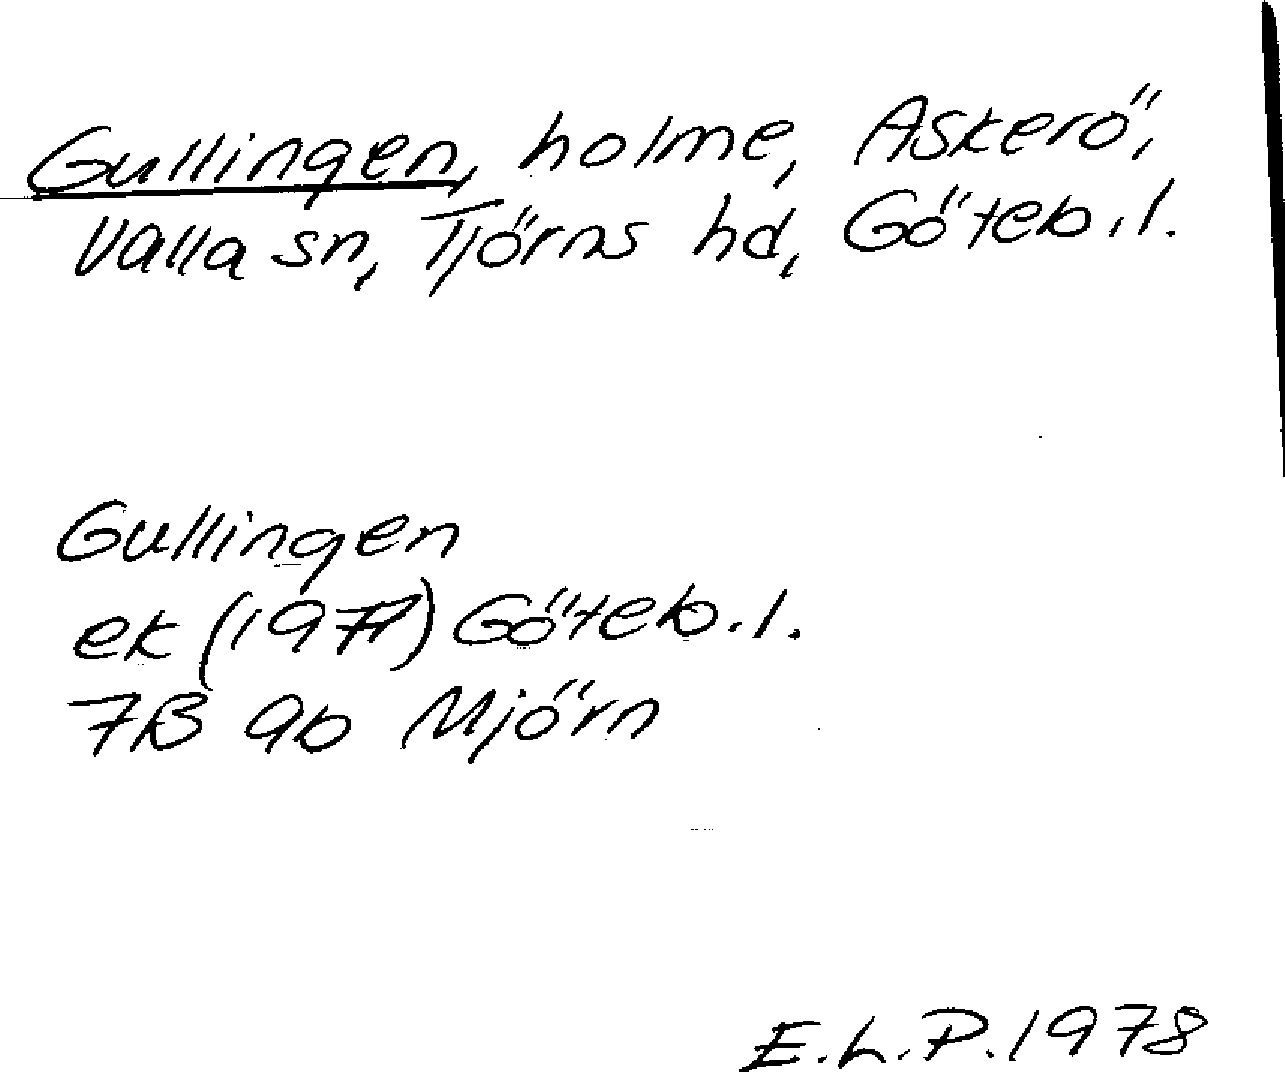 Gullingen, holme, Askerö,
Valla sn, Tjörns hd, Göteb.l.
Gullingen
ek (1977) Göteb.l.
7B 9b Mjörn
E.L.P. 1978